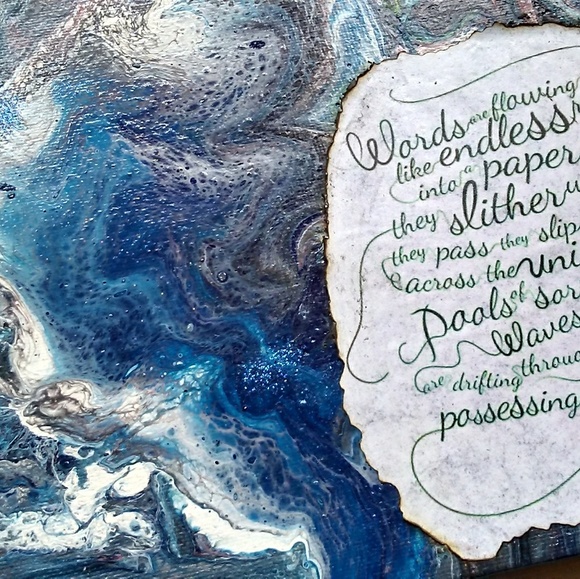 Words are flowing
like endless
into a paper
they slither
they pass they slip
across the uni
Pools of sor
Waves
are drifting throug
possessing